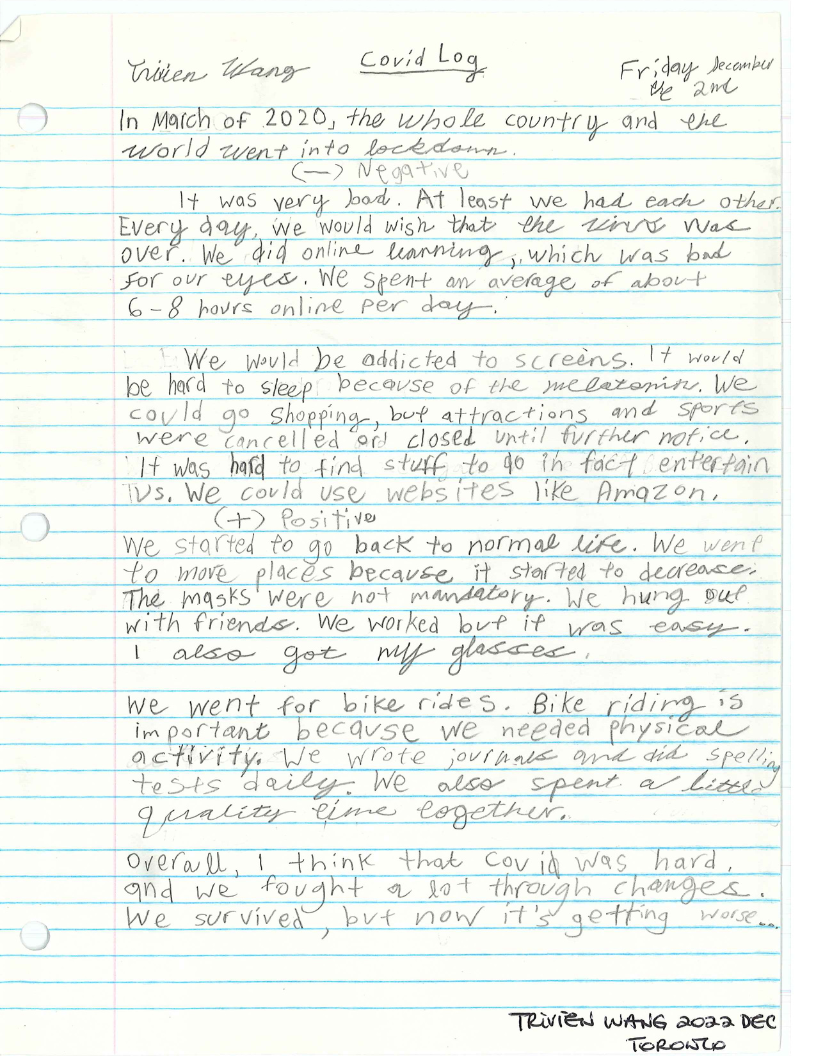 Trivien Wang
Covid Log
Friday December
the 2nd
In March of 2020, the whole country and the
world went into lockdown.
(-) Negative
It was very bad. At least we had each other.
Every day, we would wish that the virus was
over. We did online learning, which was bad
for our eyes. We spent an average of about
6-8 hours online per day.
We would be addicted to screens. It would
be hard to sleep because of the melatonin. We
could go shopping, but attractions and sports
were cancelled or closed until further notice.
It was hard to find stuff to do in fact entertain
us. We could use websites like Amazon.
(+) Positive
We started to go back to normal life. We went
to more places because it started to decrease.
The masks were not mandatory. We hung out
with friends. We worked but it was easy.
I also got my glasses.
We went for bike rides. Bike riding is
important because we needed physical
activity. We wrote journals and did spelling
tests daily. We also spent a little
quality time together.
Overall, I think that Covid was hard,
and we fought a lot through changes.
We survived, but now it's getting worse...
TRIVIEN WANG 2022 DEC
TORONTO